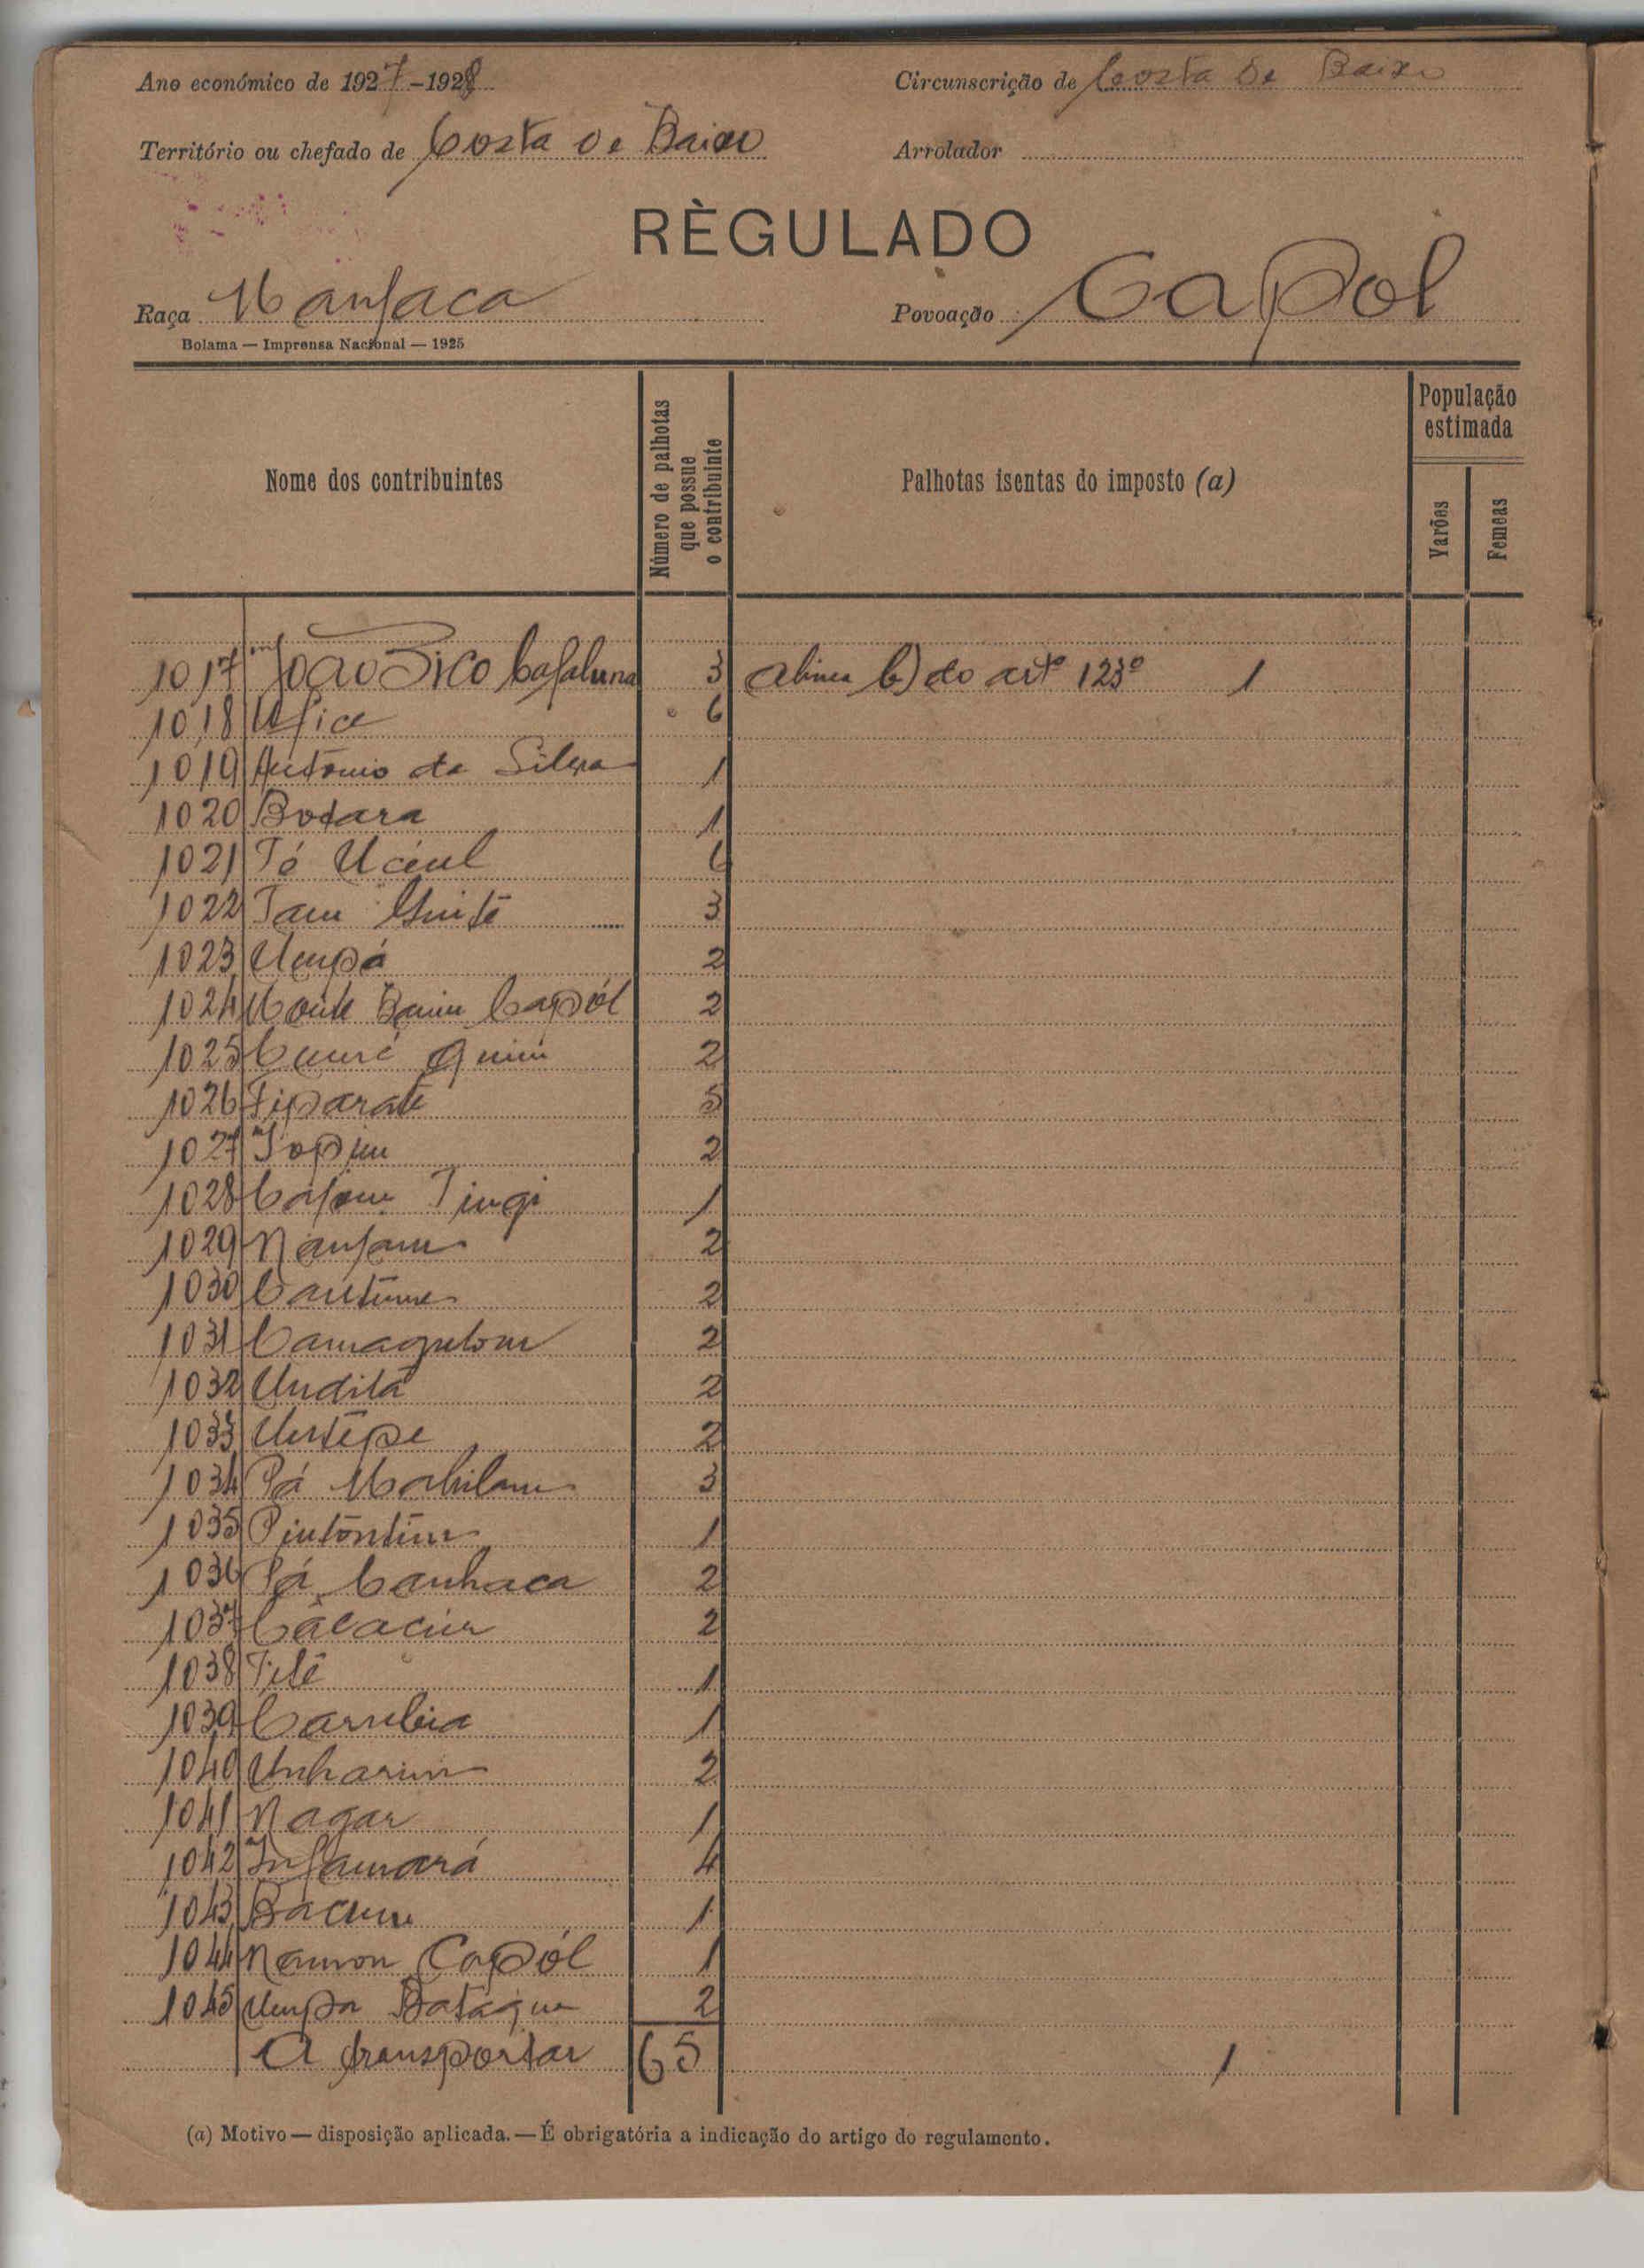 Ano económico de 1927-1928
Circunscrição de Costa de Baixo
Território ou chefado de Costa de Baixo
Arrolador
RÈGULADO
Raça Manjaca
Povoação Capol
Bolama — Imprensa Nacional — 1925
Nome dos contribuintes
Número de palhotas que possue o contribuinte
Palhotas isentas do imposto (a)
População estimada
Varões
Femeas
1017 João Pico Cafaluna 3 alinea b) do artº 123º 1
1018 6
1019 António da Silva 1
1020 Bodara 1
1021 Tó 6
1022 Tam 3
1023 Umpá 2
1024 Capól 2
1025 2
1026 Tiparate 5
1027 Topim 2
1028 Tingi 1
1029 Nanjam 2
1030 2
1031 2
1032 Undita 2
1033 Untépe 2
1034 Pá 3
1035 Pintontim 1
1036 Pá Canhaca 2
1037 2
1038 1
1039 1
1040 Unharim 2
1041 Nagar 1
1042 Infamará 4
1043 Bacum 1
1044 Namon Capól 1
1045 Umpa Bataque 2
A transportar 65 1
(a) Motivo — disposição aplicada. — É obrigatória a indicação do artigo do regulamento.